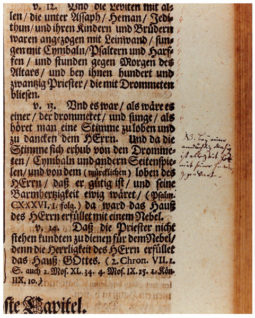 v. 12. Und die Leviten mit al-
len / die unter Assaph / Heman / Jedi-
thun / und ihren Kindern und Brüdern
waren / angezogen mit Leinwand / sun-
gen mit Cymbaln / Psaltern und Harf-
fen / und stunden gegen Morgen des
Altars / und bey ihnen hundert und
zwantzig Priester / die mit Drommeten
bliesen.
v. 13. Und es war / als wäre es
einer / der drommetet / und sünge / als
höret man eine Stimme zu loben und
zu dancken dem HErrn. Und da die
Stimme sich erhub von den Dromme-
ten / Cymbaln und andern Seitenspie-
len / und von dem (würcklichen) loben des
HErrn / daß er gütig ist / und seine
Barmhertzigkeit ewig währet / (Psalm.
CXXXVI, 1. folg.) da ward das Hauß
des HErrn erfüllet mit einem Nebel.
v. 14. Daß die Priester nicht
stehen kundten zu dienen für dem Nebel /
denn die Herrligkeit des HErrn erfüllet
das Hauß GOttes. (2. Chron. VII. 1.
S. auch 2. Mos. XL. 34. 4. Mos. IX. 15. 1. Kön.
IIX. 10.)
ste Capitel.